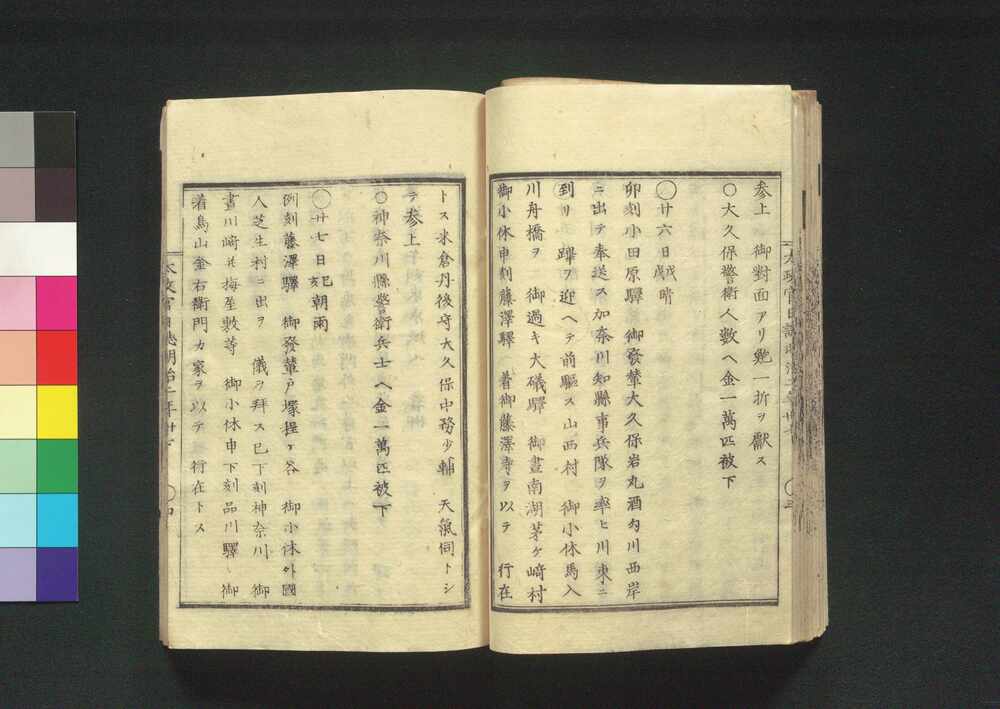 参上　御對面アリ鮑一折ヲ獻ス
○大久保警衛人數ヘ金一萬匹被下
○廿六日戊戌晴
卯刻小田原驛　御發輦大久保岩丸酒匂川西岸
ニ出テ奉送ス加奈川知縣事兵隊ヲ率ヒ川東ニ
到リ　蹕ヲ迎ヘテ前驅ス山西村　御小休馬入
川舟橋ヲ　御過キ大磯驛　御晝南湖茅ケ﨑村
御小休申刻藤澤驛　着御藤澤寺ヲ以テ　行在
トス米倉丹後守大久保中務少輔　天氣伺トシ
テ参上
○神奈川縣警衛兵士ヘ金一萬匹被下
○廿七日己亥朝雨
例刻藤澤驛　御發輦戸塚程ケ谷　御小休外國
人芝生村ニ出ヲ　儀ヲ拜ス巳下刻神奈川　御
晝川﨑並梅屋敷等　御小休申下刻品川驛　御
着鳥山金右衛門カ家ヲ以テ　行在トス
太政官日誌明治二年廿下